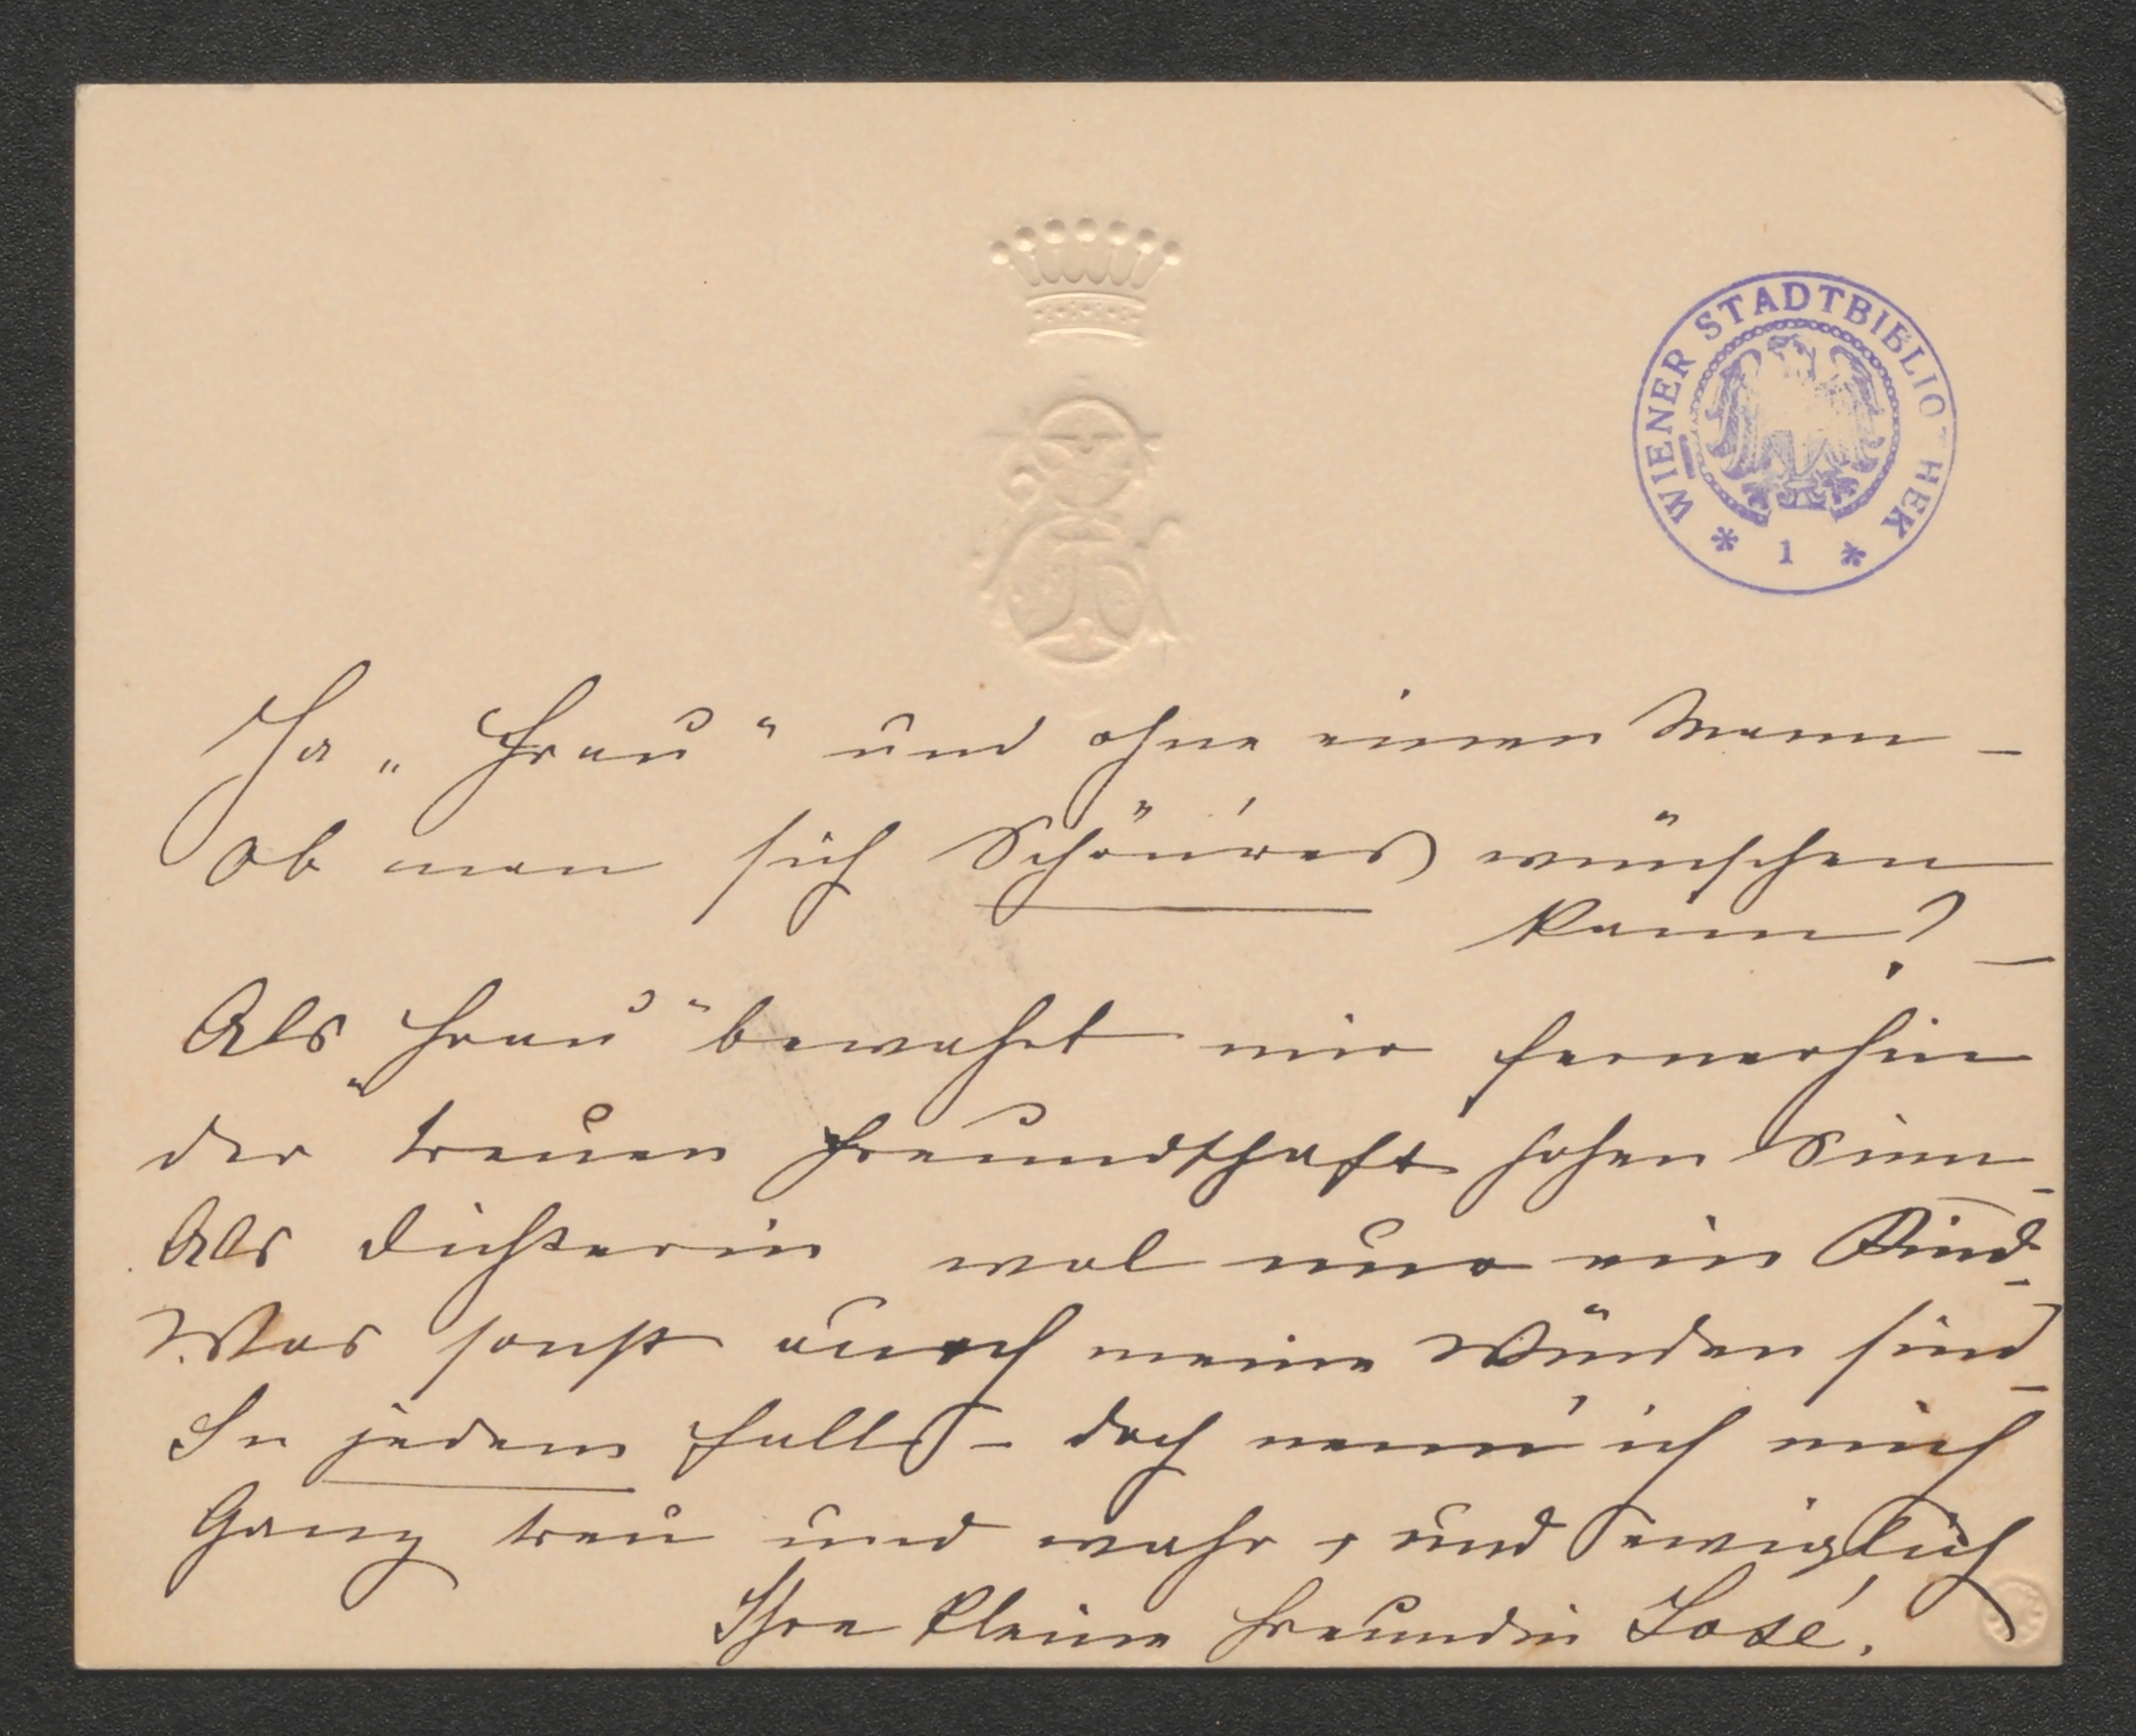 WIENER STADTBIBLIOTHEK
* 1 *
Ja „Frau“ und ohne einen Mann –
Ob man sich Schön'res wünschen
kann? –
Als „Frau“ bewahrt mir fernerhin
der treuen Freundschaft hohen Sinn –
Als Dichterin wol nur ein Kind –
Was sonst auch meine Würden sind –
In jedem Falls – doch nenn' ich mich
Ganz treu und wahr, und ewiglich
Ihre kleine Freundin José.